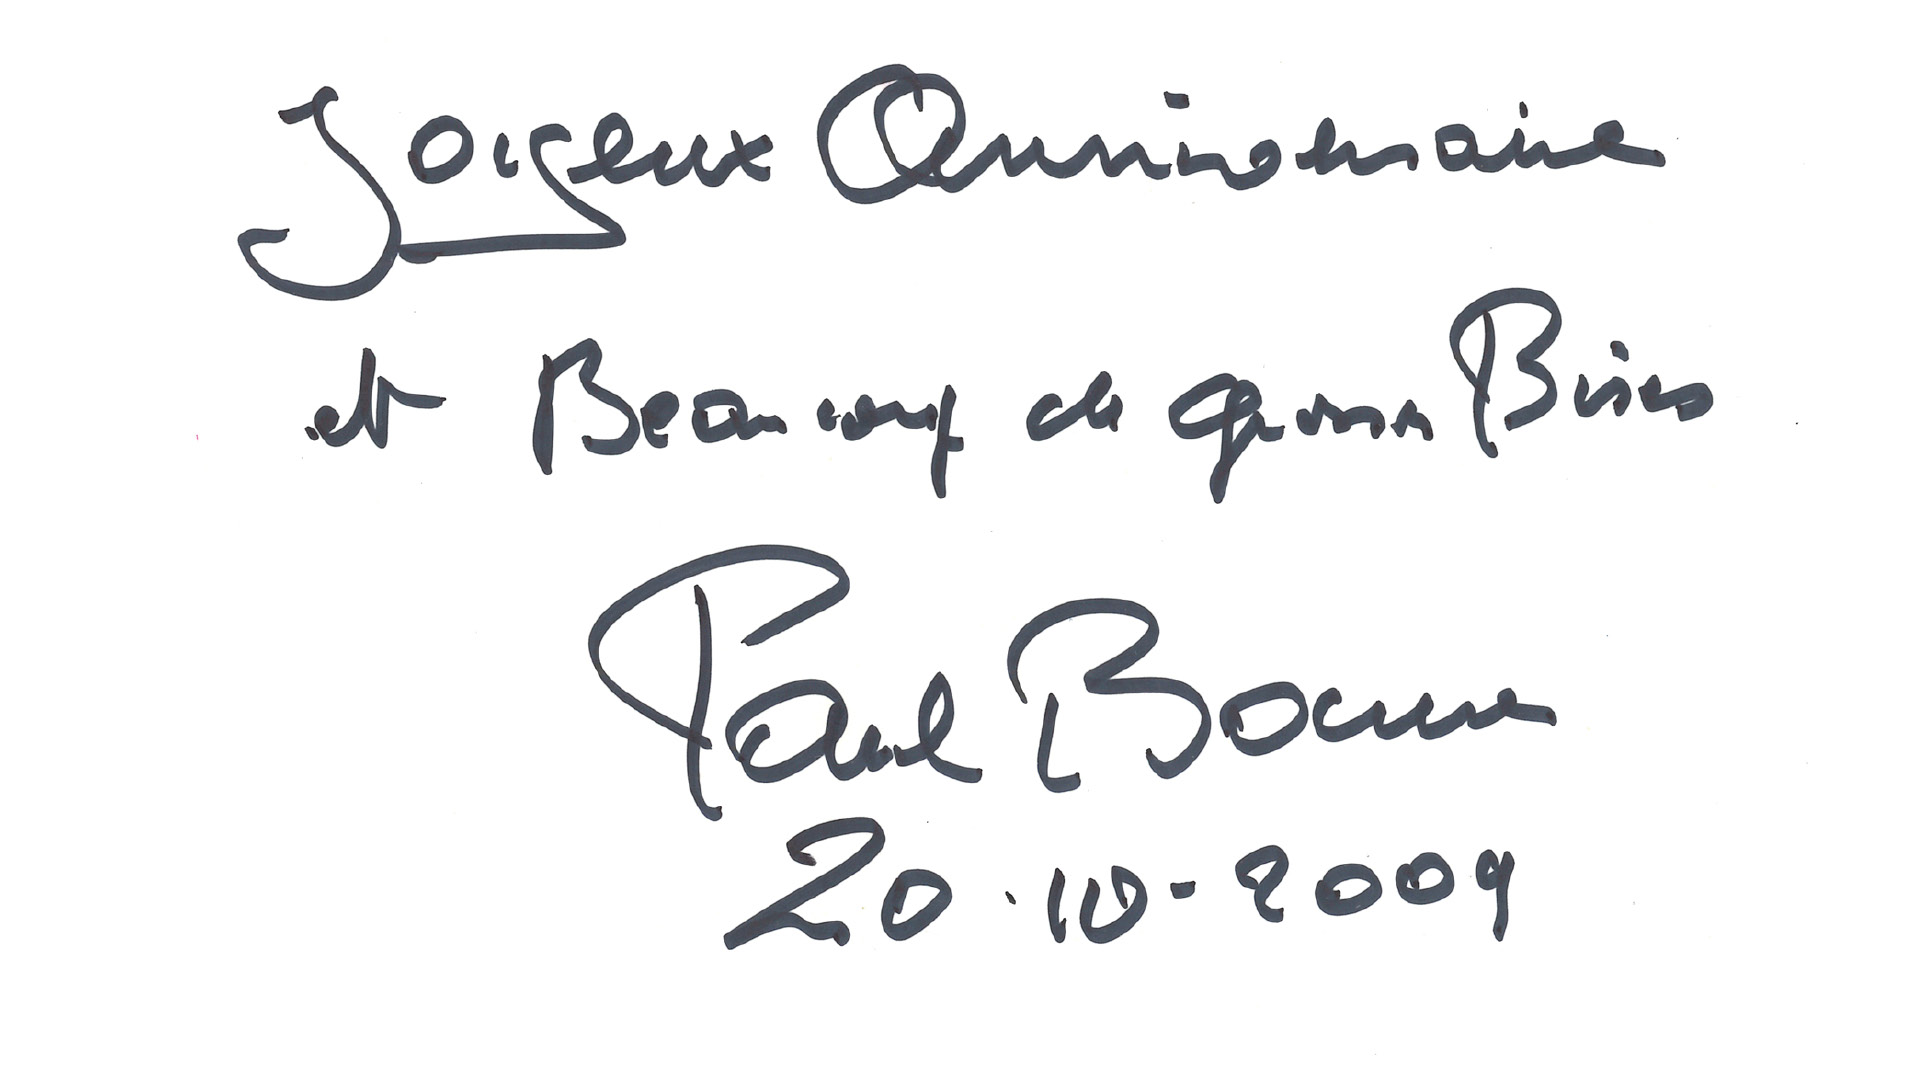 Joyeux Anniversaire
et Beaucoup de grosses Bises
Paul Bocuse
20.10-2009